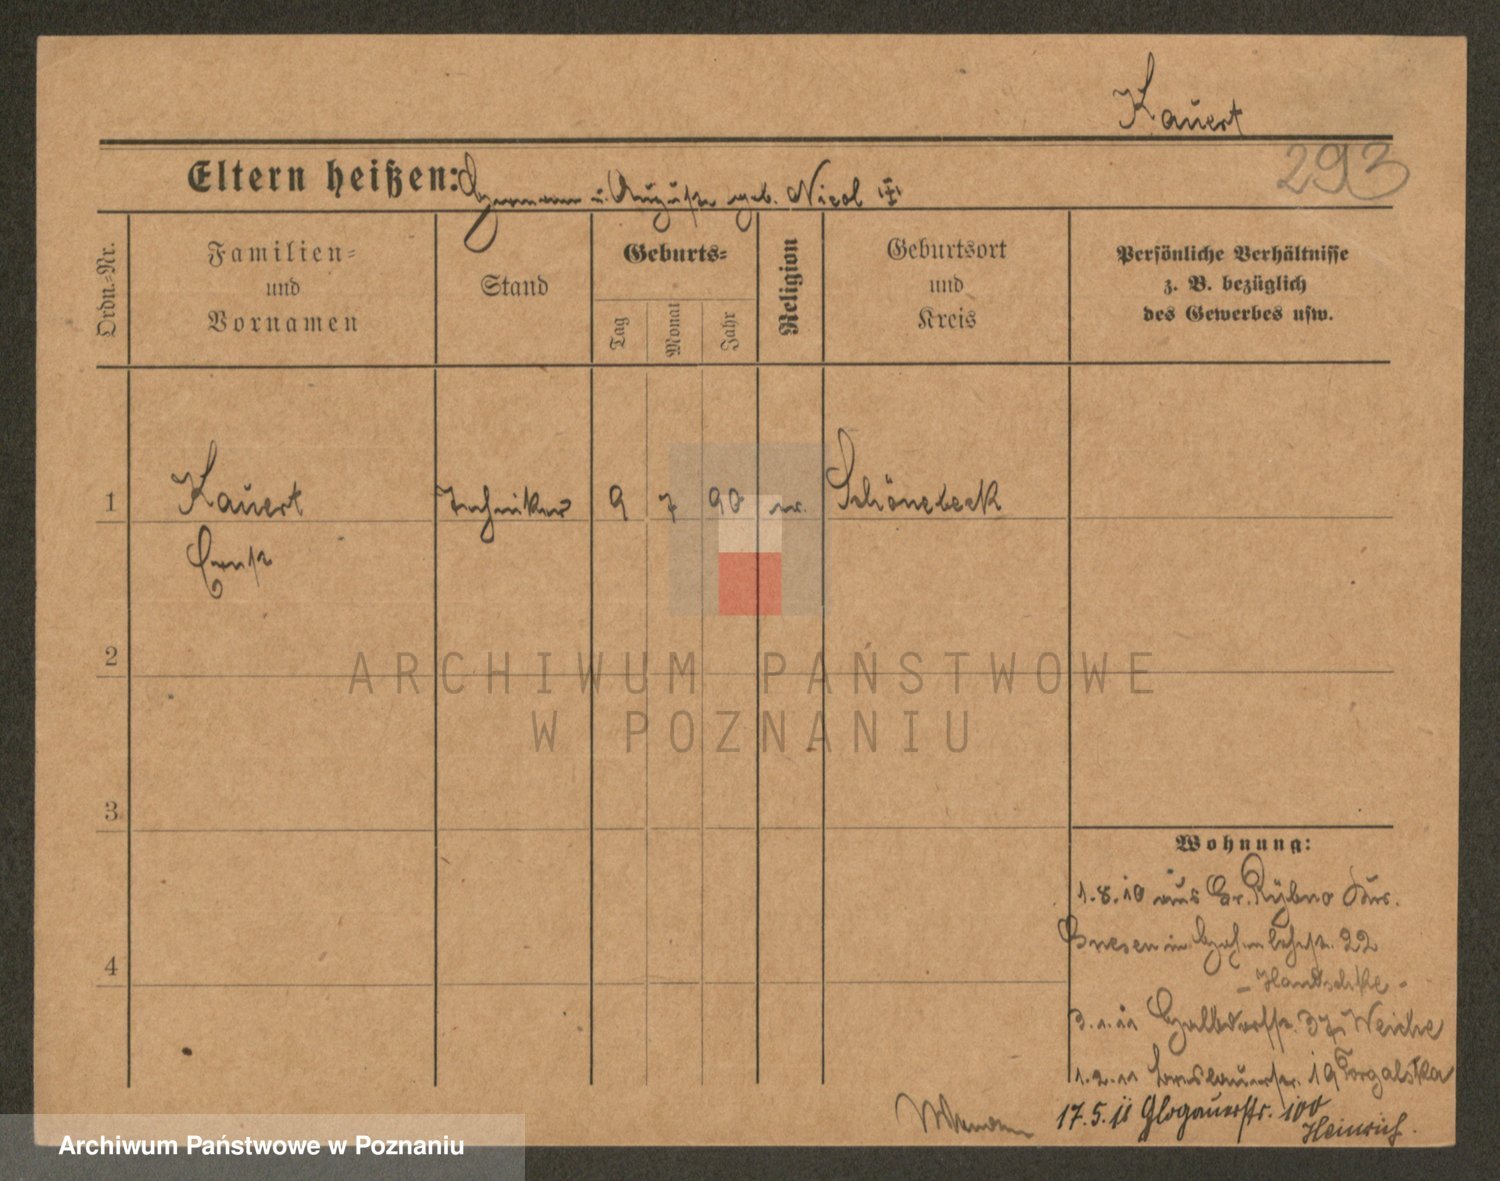 Kauert
293
Eltern heißen: Hermann u. Auguste geb. Nicol
Ordn.-Nr.
Familien-
und
Vornamen
Stand
Geburts-
Tag
Monat
Jahr
Religion
Geburtsort
und
Kreis
Persönliche Verhältnisse
z. B. bezüglich
des Gewerbes usw.
1 Kauert Techniker 9 7 90 ev. Schönebeck
Ernst
2
ARCHIWUM PAŃSTWOWE
W POZNANIU
3
Wohnung:
1.8.10 aus Gr. Rybno Krs.
Gnesen in 22
4
- Handschke -
3.1.11 37 Weiche
1.2.11 Breslauerstr. 19 Torgalska
17.5.11 Glogauerstr. 100
Heinrich.
Archiwum Państwowe w Poznaniu